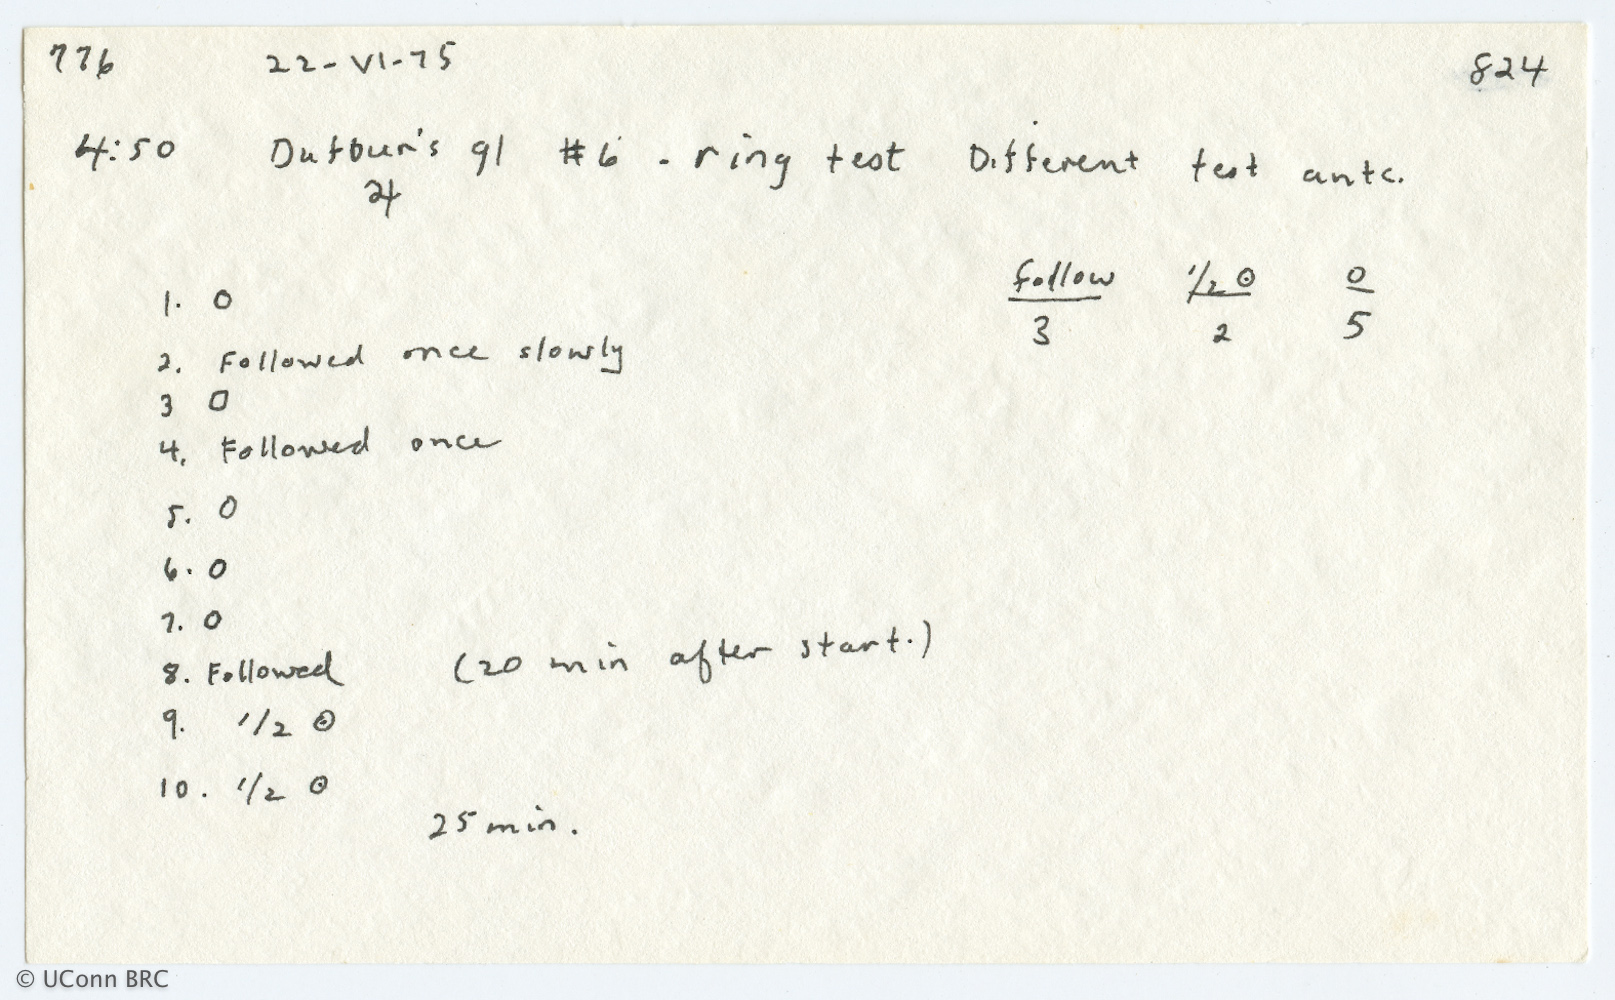 776 22-VI-75 824
4:50 Dufour's gl #6 - ring test Different test ants.
24
1. 0
2. Followed once slowly
3 0
4. Followed once
5. 0
6. 0
7. 0
8. Followed (20 min after start.)
9. 1/2 ⊙
10. 1/2 ⊙
25 min.
follow 1/2 ⊙ 0
3 2 5
© UConn BRC